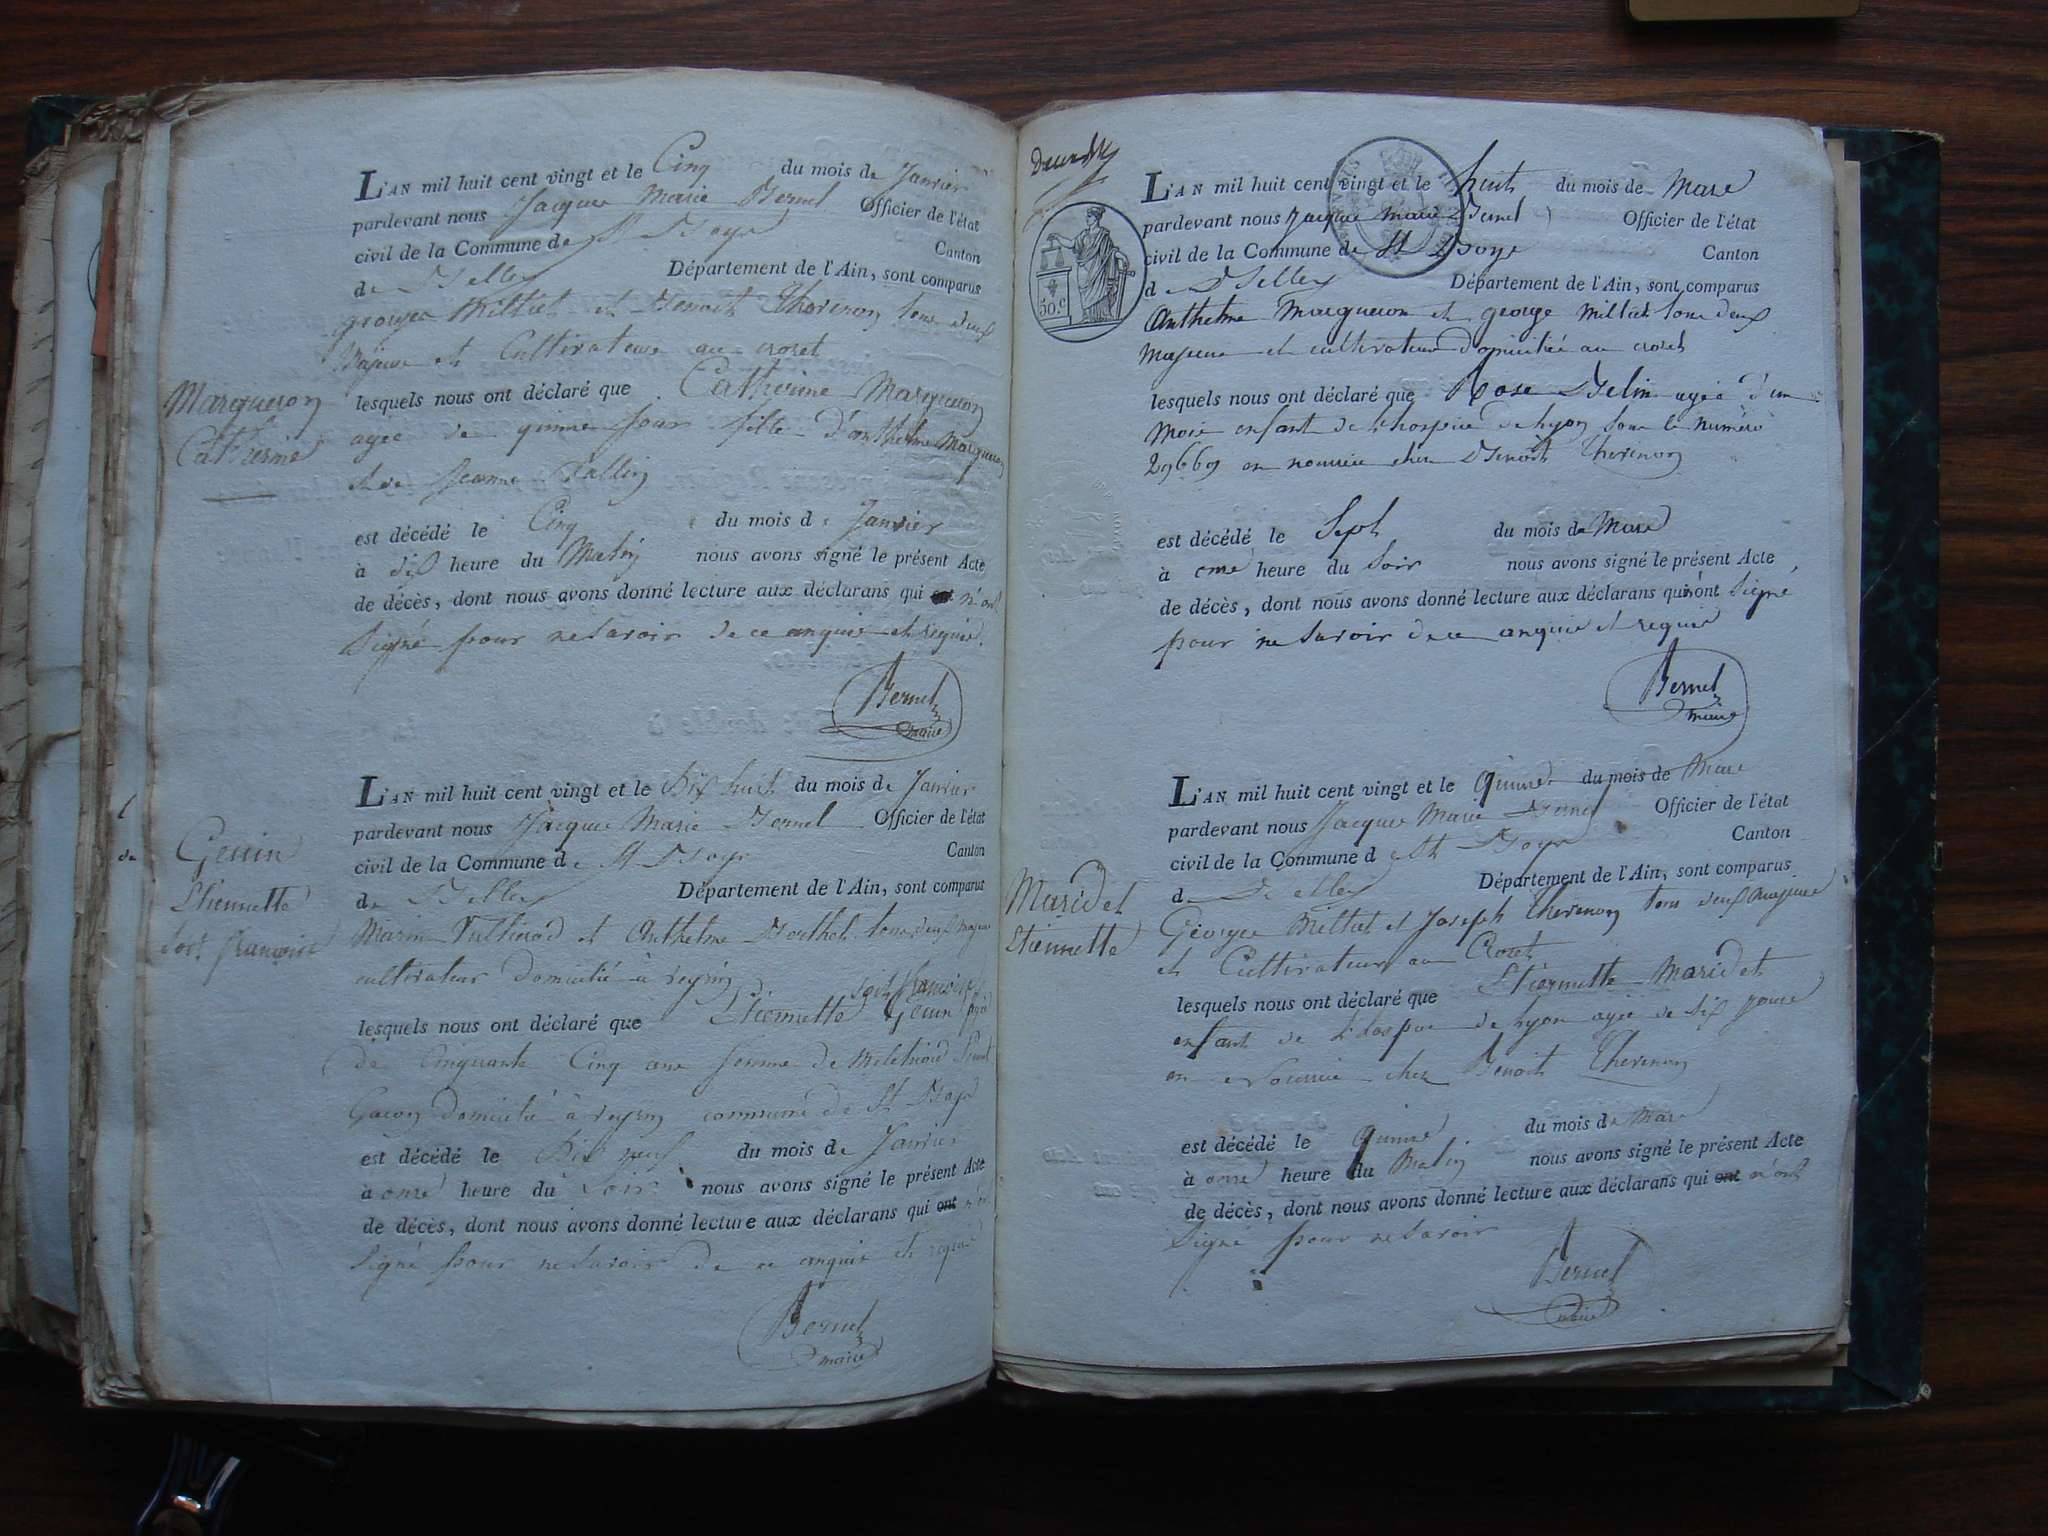 L'AN mil huit cent vingt et le Cinq du mois de Janvier
pardevant nous Jacque Marie Bernel Officier de l'état
civil de la Commune de St Boys Canton
de Belley Département de l'Ain, sont comparus
George Milliet et Benoit Thevenon tous deux
Majeur et Cultivateur au crozet
Marqueron
Catherine
lesquels nous ont déclaré que Catherine Marqueron
agée de quinze jour fille d'anthelme Marqueron
et de Jeanne
est décédé le Cinq du mois de Janvier
à dix heure du Matin nous avons signé le présent Acte
de décès, dont nous avons donné lecture aux déclarans qui n'ont
signé pour ne savoir de ce enquis et requis
Bernel
maire
L'AN mil huit cent vingt et le Dix huit du mois de Janvier
pardevant nous Jacque Marie Bernel Officier de l'état
civil de la Commune de St Boys Canton
de Belley Département de l'Ain, sont comparus
Etiennette
Marin et Anthelme Berthet tous deux Majeur
cultivateur domicilié à
françoise
lesquels nous ont déclaré que Etiennette
de Cinquante Cinq ans femme de
domicilié à commune de St Boys
est décédé le Dix neuf du mois de Janvier
à onze heure du Soir nous avons signé le présent Acte
de décès, dont nous avons donné lecture aux déclarans qui ont
signé pour ne savoir de ce enquis et requis
Bernel
maire
50.c
L'AN mil huit cent vingt et le huit du mois de Mars
pardevant nous Jacque Marie Bernel Officier de l'état
civil de la Commune de St Boys Canton
de Belley Département de l'Ain, sont comparus
Anthelme Marqueron et george Milliet tous deux
majeur et cultivateur domicilié au crozet
lesquels nous ont déclaré que Rose Belin agée d'un
Mois enfant de l'hospice de Lyon sous le numéro
29669 en nourrice chez Benoit Thevenon
est décédé le Sept du mois de Mars
à onze heure du Soir nous avons signé le présent Acte
de décès, dont nous avons donné lecture aux déclarans qui n'ont signé
pour ne savoir de ce enquis et requis
Bernel
maire
L'AN mil huit cent vingt et le quinze du mois de Mars
pardevant nous Jacque Marie Bernel Officier de l'état
civil de la Commune de St Boys Canton
de Belley Département de l'Ain, sont comparus
Maridet
Etiennette
George Milliet et Joseph Thevenon tous deux majeur
et Cultivateur au Crozet
lesquels nous ont déclaré que Etiennette Maridet
enfant de l'hospice de Lyon agée de dix jours
en nourrice chez Benoit Thevenon
est décédé le quinze du mois de Mars
à onze heure du Matin nous avons signé le présent Acte
de décès, dont nous avons donné lecture aux déclarans qui ont n'ont
signé pour ne savoir
Bernel
maire